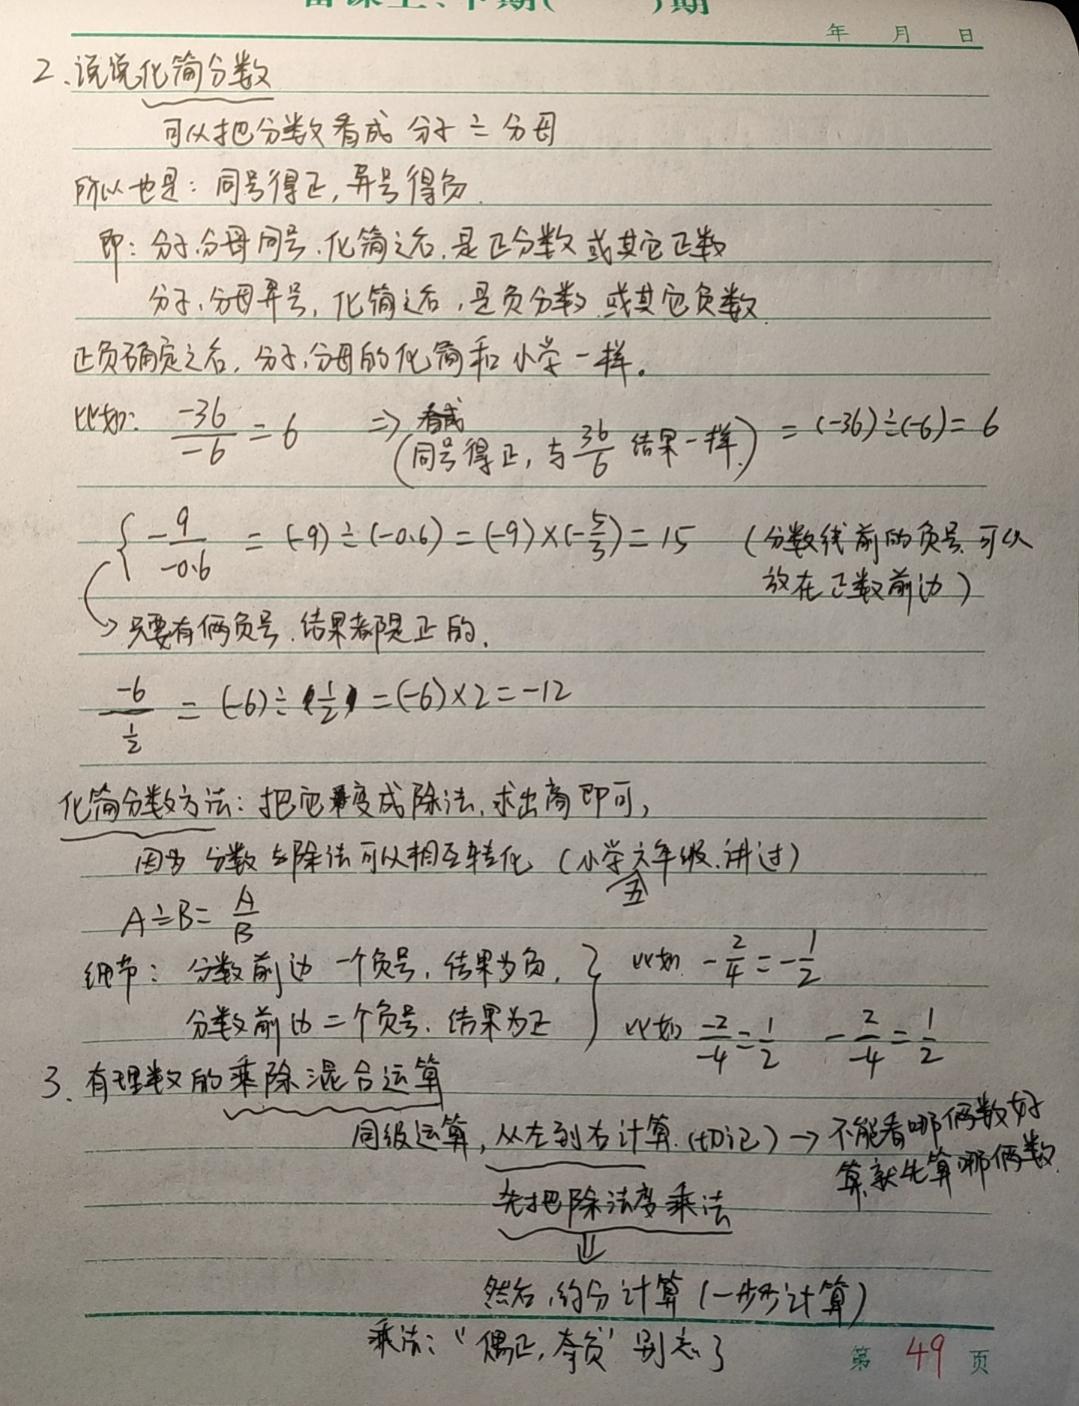 年 月 日
2、说说化简分数
可以把分数看成 分子÷分母
所以也是：同号得正，异号得负.
即：分子、分母同号，化简之后，是正分数或其它正数
分子、分母异号，化简之后，是负分数，或其它负数.
正负确定之后，分子、分母的化简和小学一样。
比如：-36/-6 = 6 => 看成 (同号得正，与36/6结果一样.) = (-36)÷(-6) = 6
-9/-0.6 = (-9)÷(-0.6) = (-9)×(-5/3) = 15 (分数线前的负号，可以
放在正数前边)
→只要有俩负号，结果都是正的.
-6/(1/2) = (-6)÷(1/2) = (-6)×2 = -12
化简分数方法：把它变成除法，求出商即可，
因为 分数与除法可以相互转化 (小学六年级，讲过)
五
A÷B = A/B
细节：分数前边一个负号，结果为负， 比如 -2/4 = -1/2
分数前边二个负号，结果为正 比如 -2/-4 = 1/2 -2/-4 = 1/2
3、有理数的乘除混合运算
同级运算，从左到右计算.(切记) → 不能看哪俩数好
算，就先算哪俩数.
先把除法变乘法
⇓
然后，约分计算 (一步步计算)
乘法：“偶正，奇负” 别忘了
第 49 页